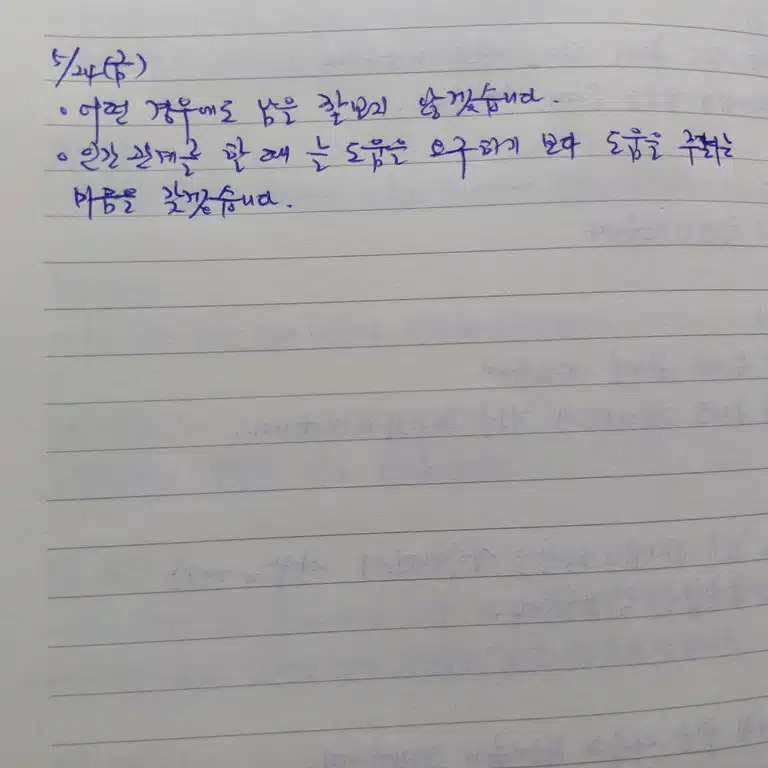 5/24(금)
• 어떤 경우에도 남을 깔보지 않겠습니다.
• 인간 관계를 할 때 늘 도움을 요구하기 보다 도움을 주려는
마음을 갖겠습니다.